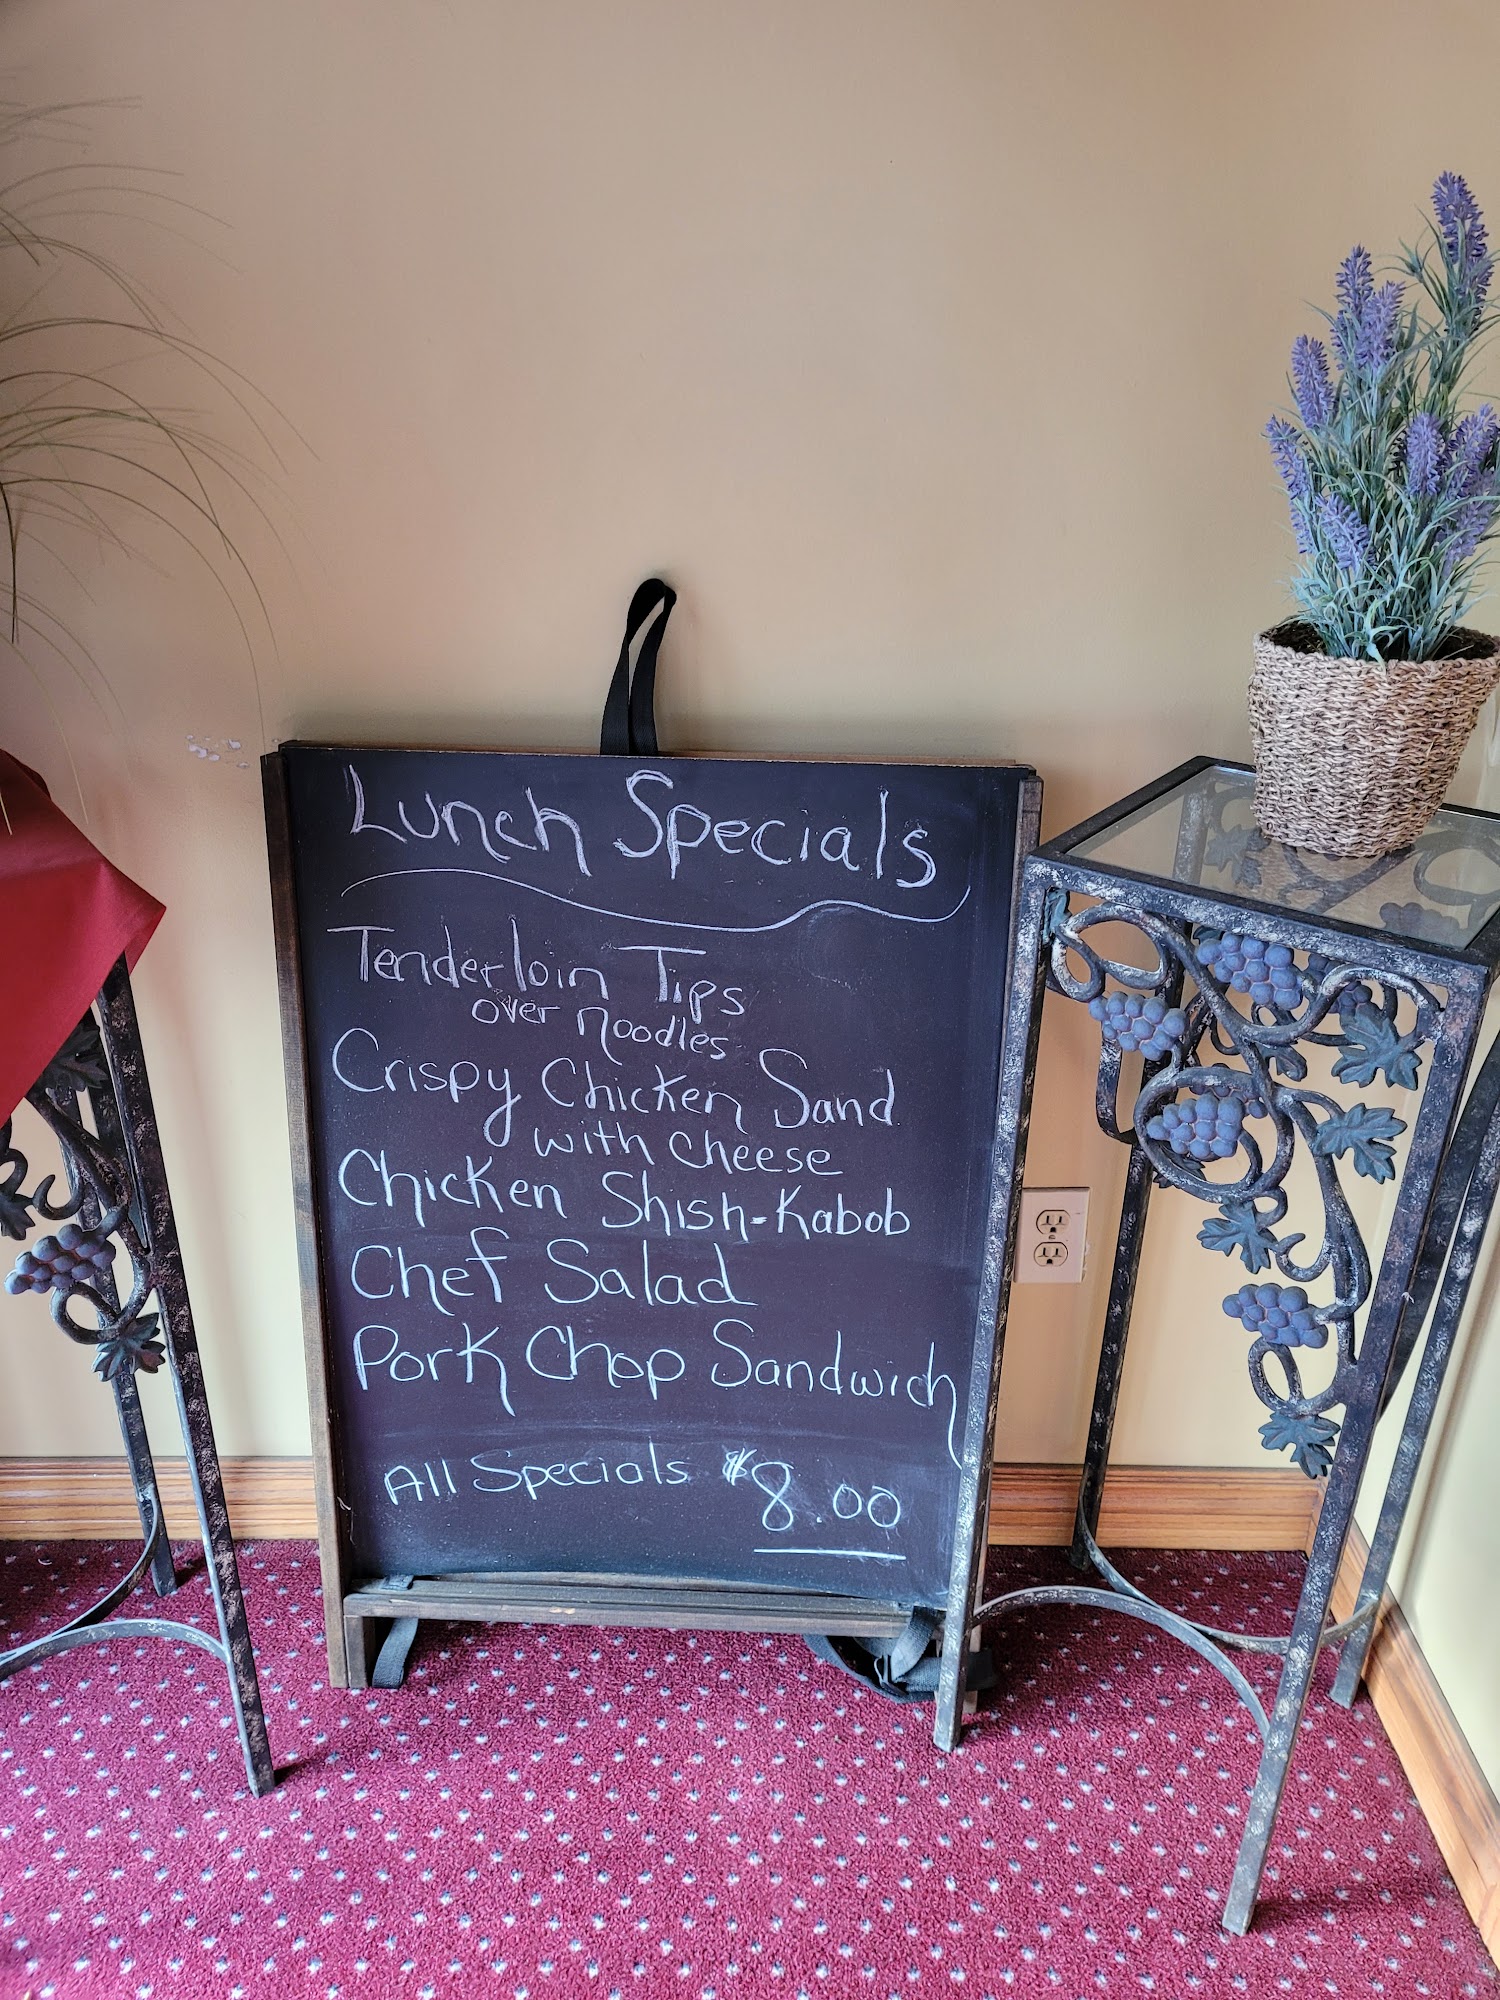 Lunch Specials
Tenderloin Tips
over noodles
Crispy Chicken Sand
with cheese
Chicken Shish-Kabob
Chef Salad
Pork Chop Sandwich
All Specials $8.00